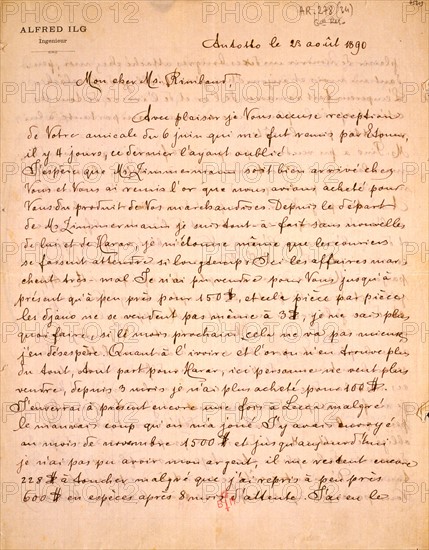 ALFRED ILG
Ingenieur
AR-278 (34)
Antotto le 23 août 1890
Mon cher Mr. Rimbaud,
Avec plaisir je Vous accuse réception
de Votre amicale du 6 juin qui me fut remis par
il y 4 jours, ce dernier l'ayant oublié.
J'espère que Mr Zimmermann soit bien arrivé chez
Vous et Vous ai remis l'or que nous avions acheté pour
Vous du produit de Vos marchandises. Depuis le départ
de Mr Zimmermann je suis tout-à-fait sans nouvelles
de lui et de Harar, je m'étonne même que les couriers
se fassent attendre si longtemps. Ici les affaires mar-
chent très-mal. Je n'ai pu vendre pour Vous jusqu'à
présent qu'à peu près pour 150 $, et cela pièce par pièce
les djano ne se vendent pas même à 3 $, je ne sais plus
quoi faire, si le mois prochain cela ne va pas mieux
j'en désespère. Quant à l'ivoire et l'or on n'en trouve plus
du tout, tout part pour Harar, ici personne ne veut plus
vendre, depuis 3 mois je n'ai plus acheté pour 100 $.
J'enverrai à présent encore une fois à Leca malgré
le mauvais coup qu'on m'a joué. J'y avais envoyé
au mois de novembre 1500 $ et jusqu'aujourd'hui
je n'ai pas pu avoir mon argent, il me restent encore
228 $ à toucher malgré que j'ai repris à peu près
600 $ en espèces après 8 mois d'attente. J'ai eu le